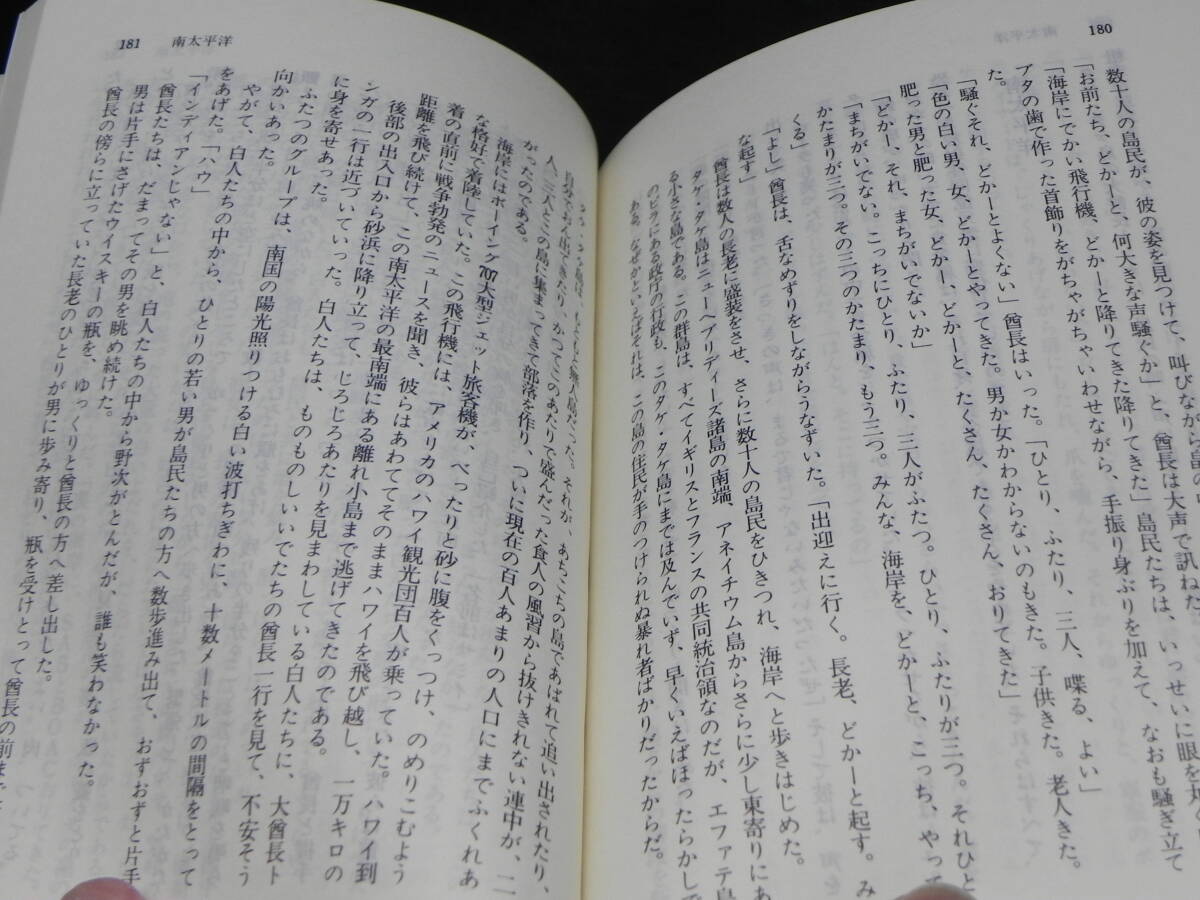 180
南太平洋
数十人の島民が、彼の姿を見つけて、叫びながら
「お前たち、どかーと、何大きな声騒ぐか」と、酋長は大声で訊ねた。
「海岸にでかい飛行機、どかーと降りてきた降りてきた」島民たちは、いっせいに眼を
ブタの歯で作った首飾りをがちゃがちゃいわせながら、手振り身ぶりを加えて、なおも騒ぎ立て
た。
「騒ぐそれ、どかーとよくない」酋長はいった。「ひとり、ふたり、三人、喋る、よい」
「色の白い男、女、どかーとやってきた。男か女かわからないのもきた。子供きた。老人きた。
肥った男と肥った女、どかーと、どかーと、たくさん、たくさん、おりてきた」
「どかー、それ、まちがいでないか」
「まちがいでない。こっちにひとり、ふたり、三人がふたつ。ひとり、ふたりが三つ。それひと
かたまりが三つ。その三つのかたまり、もう三つ。みんな、海岸を、どかーと、こっち、やって
くる」
「よし」酋長は、舌なめずりをしながらうなずいた。「出迎えに行く。長老、どかーと起す。み
な起す」
酋長は数人の長老に盛装をさせ、さらに数十人の島民をひきつれ、海岸へと歩きはじめた。
タケ・タケ島はニューヘブリディーズ諸島の南端、アネイチウム島からさらに少し東寄りにあ
る小さな島である。この群島は、すべてイギリスとフランスの共同統治領なのだが、エファテ島
のビラにある政庁の行政も、このタケ・タケ島にまでは及んでいず、早くいえばほったらかしで
ある。なぜかといえばそれは、この島の住民が手のつけられぬ暴れ者ばかりだったからだ。
181 南太平洋
タケ・タケ島は、もともと無人島だった。それが、あちこちの島であばれて追い出されたり、
自分でおん出てきたり、かつてこのあたりで盛んだった食人の風習から抜けきれない連中が、二
人、三人とこの島に集まってきて部落を作り、ついに現在の百人あまりの人口にまでふくれあ
がったのである。
海岸にはボーイング707大型ジェット旅客機が、べったりと砂に腹をくっつけ、のめりこむよう
な格好で着陸していた。この飛行機には、アメリカのハワイ観光団百人が乗っていた。ハワイ到
着の直前に戦争勃発のニュースを聞き、彼らはあわててそのままハワイを飛び越し、一万キロの
距離を飛び続けて、この南太平洋の最南端にある離れ小島まで逃げてきたのである。
後部の出入口から砂浜に降り立って、じろじろあたりを見まわしている白人たちに、大酋長ト
ンガの一行は近づいていった。白人たちは、ものものしいいでたちの酋長一行を見て、不安そう
に身を寄せあった。
ふたつのグループは、南国の陽光照りつける白い波打ちぎわに、十数メートルの間隔をとって
向かいあった。
やがて、白人たちの中から、ひとりの若い男が島民たちの方へ数歩進み出て、おずおずと片手
をあげた。「ハウ」
「インディアンじゃない」と、白人たちの中から野次がとんだが、誰も笑わなかった。
酋長たちは、だまってその男を眺め続けた。
男は片手にさげたウイスキーの瓶を、ゆっくりと酋長の方へ差し出した。
酋長の傍らに立っていた長老のひとりが男に歩み寄り、瓶を受けとって酋長の前まで